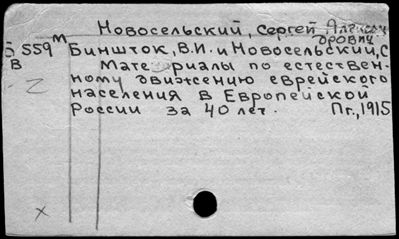 Новосельский, Сергей Алексан
дрович
559 м Биншток, В.И. и Новосельский, С
В Материалы по естествен-
ному движению еврейского
населения в Европейской
России за 40 лет. Пг., 1915